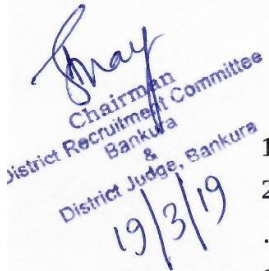 Chairman
District Recruitment Committee
Bankura
&
District Judge, Bankura
19/3/19
1
2
.